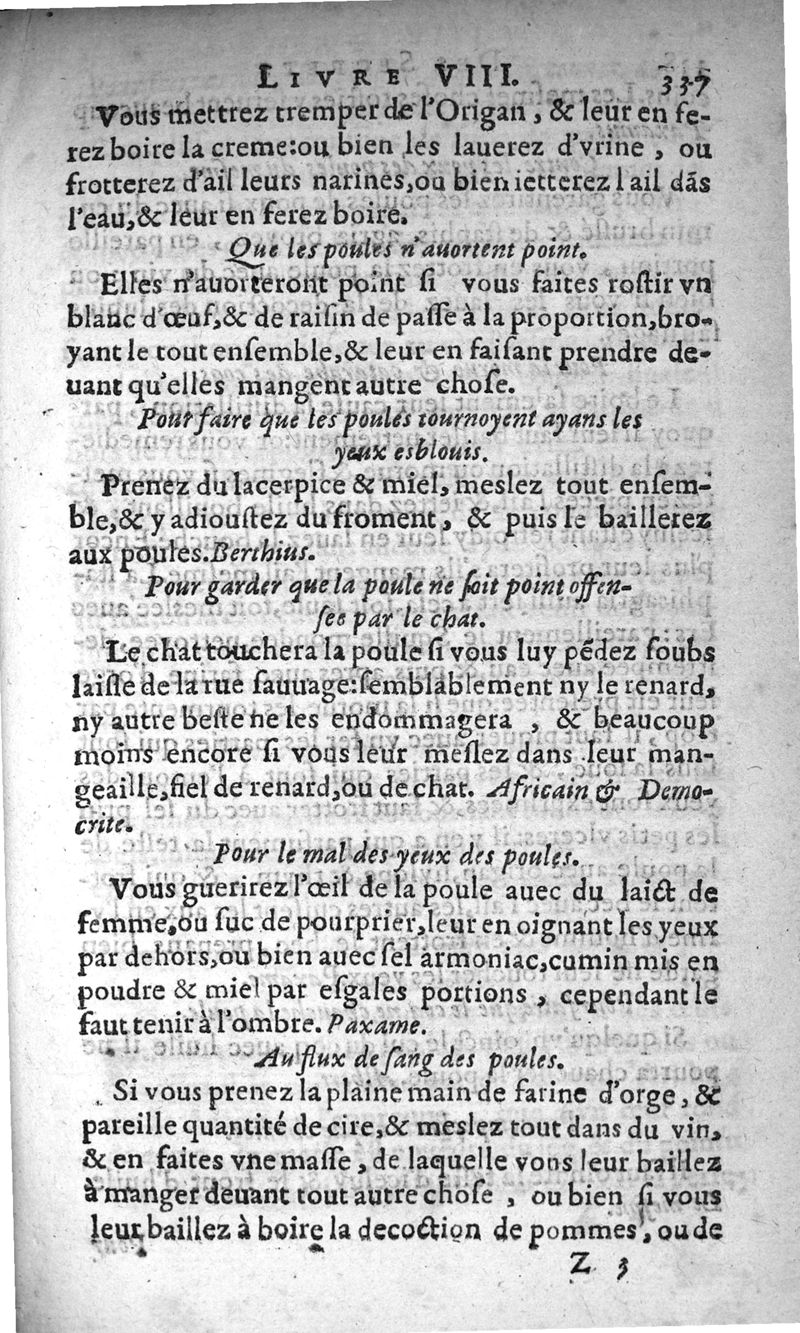 LIVRE VIII. 337
Vous mettrez tremper de l'Origan, & leur en fe-
rez boire la creme:ou bien les lauerez d'vrine, ou
frotterez d'ail leurs narines,ou bien ietterez l ail dãs
l'eau,& leur en ferez boire.
Que les poules n'auortent point.
Elles n'auorteront point ſi vous faites roſtir vn
blanc d'œuf,& de raiſin de paſſe à la proportion,bro-
yant le tout enſemble,& leur en faiſant prendre de-
uant qu'elles mangent autre choſe.
Pour faire que les poules tournoyent ayans les
yeux esblouis.
Prenez du lacerpice & miel, meslez tout enſem-
ble,& y adiouſtez du froment, & puis le baillerez
aux poules.Berthius.
Pour garder que la poule ne ſoit point offen-
ſee par le chat.
Le chat touchera la poule ſi vous luy pẽdez ſoubs
laiſle de la rue ſauuage:ſemblablement ny le renard,
ny autre beſte ne les endommagera , & beaucoup
moins encore ſi vous leur meſlez dans leur man-
geaille,fiel de renard,ou de chat. Africain & Demo-
crite.
Pour le mal des yeux des poules.
Vous guerirez l'œil de la poule auec du laict de
femme,ou ſuc de pourprier,leur en oignant les yeux
par dehors,ou bien auec ſel armoniac,cumin mis en
poudre & miel par eſgales portions , cependant le
faut tenir à l'ombre. Paxame.
Au flux de ſang des poules.
Si vous prenez la plaine main de farine d'orge, &
pareille quantité de cire,& meslez tout dans du vin,
& en faites vne maſſe, de laquelle vous leur baillez
à manger deuant tout autre choſe , ou bien ſi vous
leur baillez à boire la decoction de pommes, ou de
Z 3